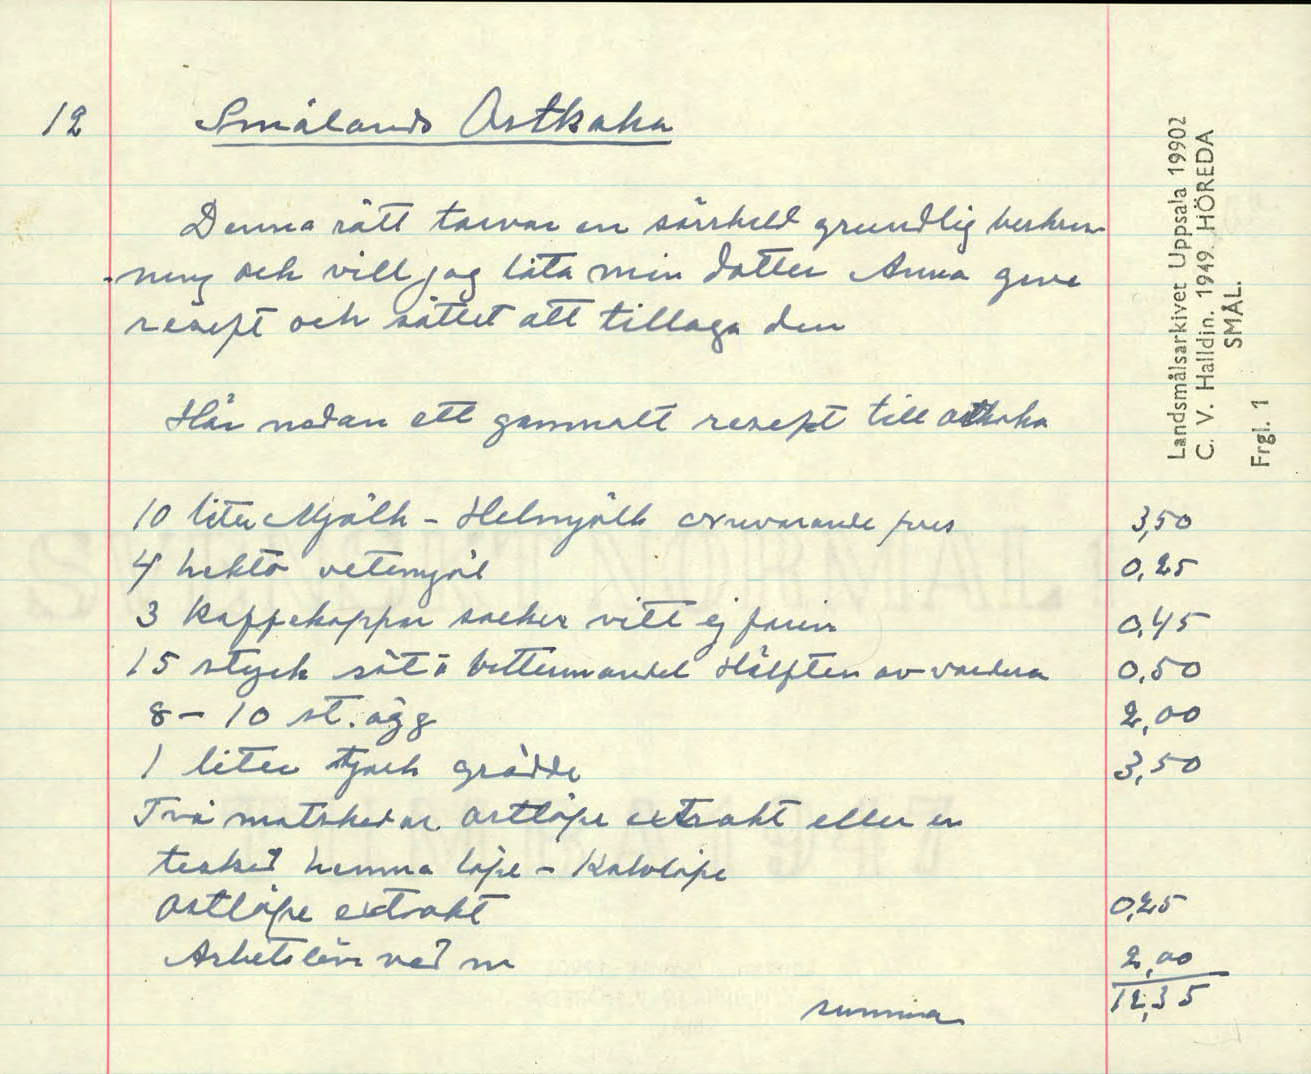 12 Smålands Ostkaka
Denna rätt tarvar en särskild grundlig beskriv-
-ning och vill jag låta min dotter Anna give
resept och sättet att tillaga den
Här nedan ett gammalt resept till ostkaka
10 liter Mjölk - Helmjölk nuvarande pris 3,50
4 hekto vetemjöl 0,25
3 Kaffekoppar socker vitt ej farin 0,45
15 styck söt o bittermandel Hälften av vardera 0,50
8-10 st. ägg 2,00
1 liter tjock grädde 3,50
Två matskedar ostlöpe extrakt eller en
tesked hemma löpe - Kalvlöpe
Ostlöpe extrakt 0,25
Arbetslön ved m 2,00
summa 12,35
Landsmålsarkivet Uppsala 19902
C. V. Halldin. 1949. HÖREDA
SMÅL.
Frgl. 1